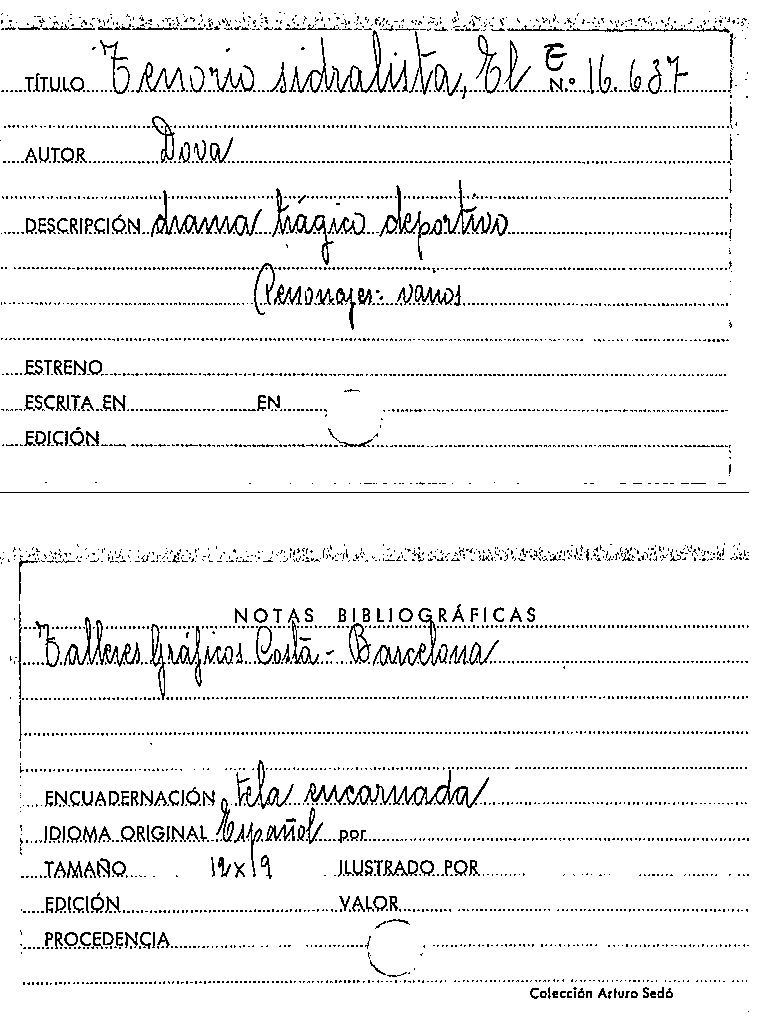 TÍTULO Tenorio sidralista, El E N.º 16.637
AUTOR Dova
DESCRIPCIÓN drama trágico deportivo
Personajes: varios
ESTRENO
ESCRITA EN EN
EDICIÓN
NOTAS BIBLIOGRÁFICAS
Talleres Gráficos Costa - Barcelona
ENCUADERNACIÓN tela encarnada
IDIOMA ORIGINAL Español por
TAMAÑO 12x19 ILUSTRADO POR
EDICIÓN VALOR
PROCEDENCIA
Colección Arturo Sedó